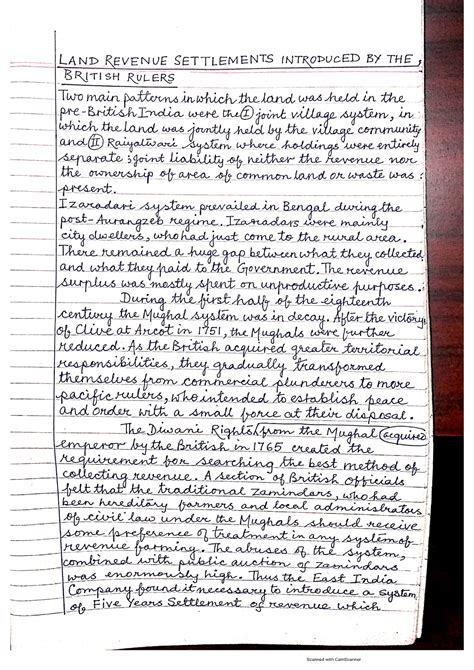 LAND REVENUE SETTLEMENTS INTRODUCED BY THE
BRITISH RULERS
Two main patterns in which the land was held in the
pre-British India were the (I) joint village system, in
which the land was jointly held by the village community
and (II) Raiyatwari system where holdings were entirely
separate; joint liability of neither the revenue nor
the ownership of area of common land or waste was
present.
Izaradari system prevailed in Bengal during the
post-Aurangzeb regime. Izaradars were mainly
city dwellers, who had just come to the rural area.
There remained a huge gap between what they collected
and what they paid to the Government. The revenue
surplus was mostly spent on unproductive purposes.
During the first half of the eighteenth
century the Mughal system was in decay. After the victory
of Clive at Arcot in 1751, the Mughals were further
reduced. As the British acquired greater territorial
responsibilities, they gradually transformed
themselves from commercial plunderers to more
pacific rulers, who intended to establish peace
and order with a small force at their disposal.
The Diwani Rights from the Mughal acquired
emperor by the British in 1765 created the
requirement for searching the best method of
collecting revenue. A section of British officials
felt that the traditional zamindars, who had
been hereditary farmers and local administrators
of civil law under the Mughals should receive
some preference of treatment in any system of
revenue farming. The abuses of the system,
combined with public auction of zamindars
was enormously high. Thus the East India
Company found it necessary to introduce a system
of Five Years Settlement of revenue which
Scanned with CamScanner